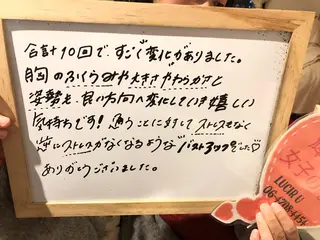 合計10回で、すごく変化がありました。
胸のふくらみや大きさやわらかさと
姿勢も、良い方向へ変化していき嬉しい
気持ちです!通うことに対してストレスもなく
逆にストレスがなくなるような「バストアップ」でした♡
ありがとうございました。
女子
LUCIR U
06-4708-4454